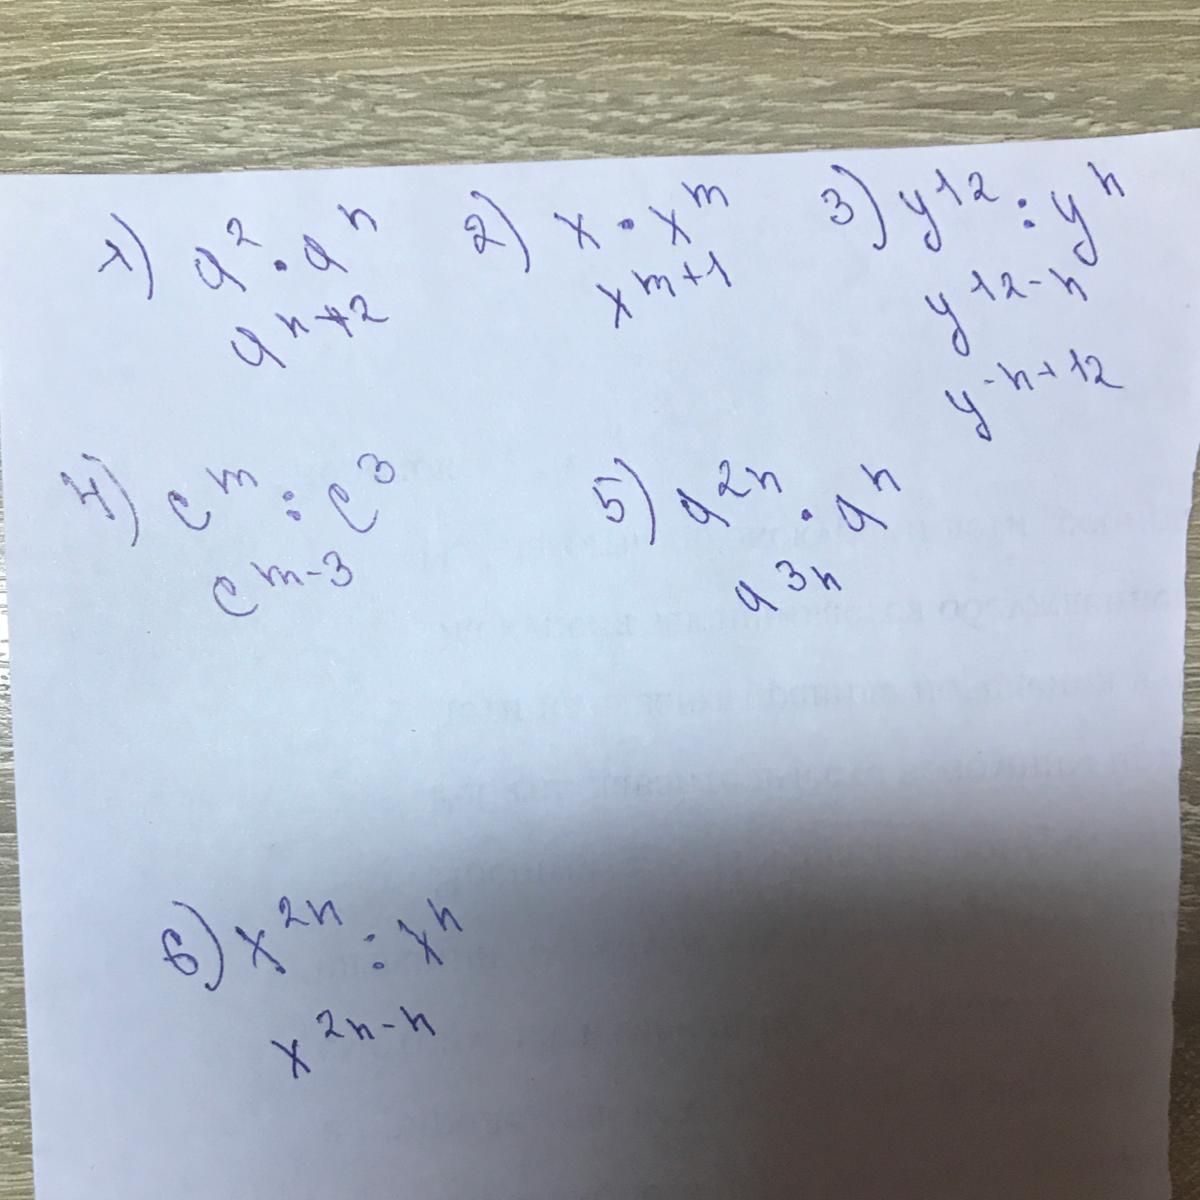 1) a² · aⁿ
aⁿ⁺²
2) x · xᵐ
xᵐ⁺¹
3) y¹² : yⁿ
y¹²⁻ⁿ
y⁻ⁿ⁺¹²
4) cᵐ : c³
cᵐ⁻³
5) a²ⁿ · aⁿ
a³ⁿ
6) x²ⁿ : xⁿ
x²ⁿ⁻ⁿ